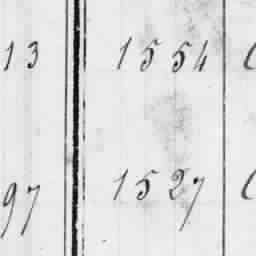 13 1554
97 1527